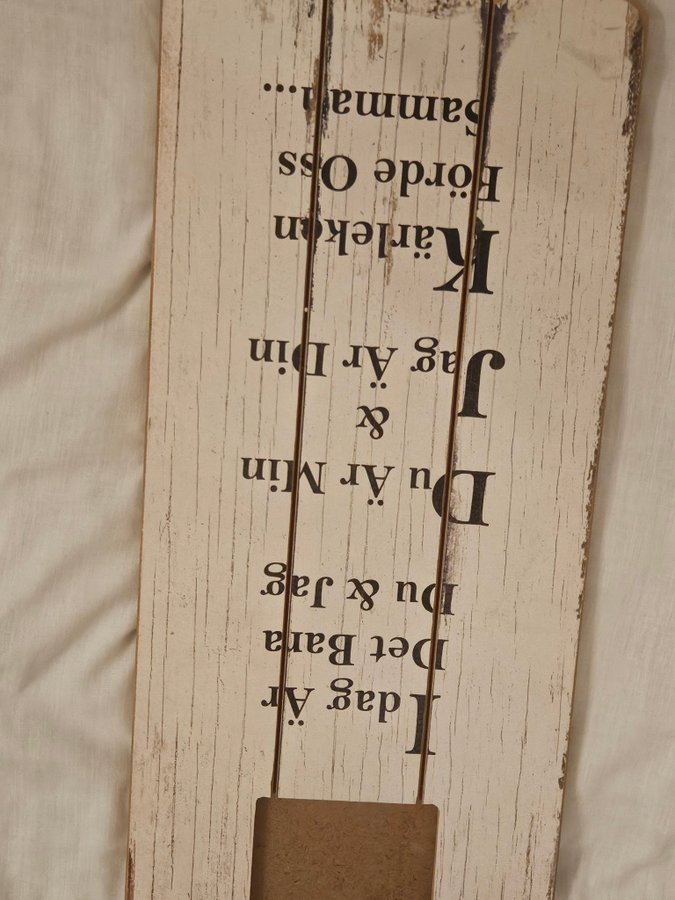 Idag Är
Det Bara
Du & Jag
Du Är Min
&
Jag Är Din
Kärleken
Förde Oss
Samman...